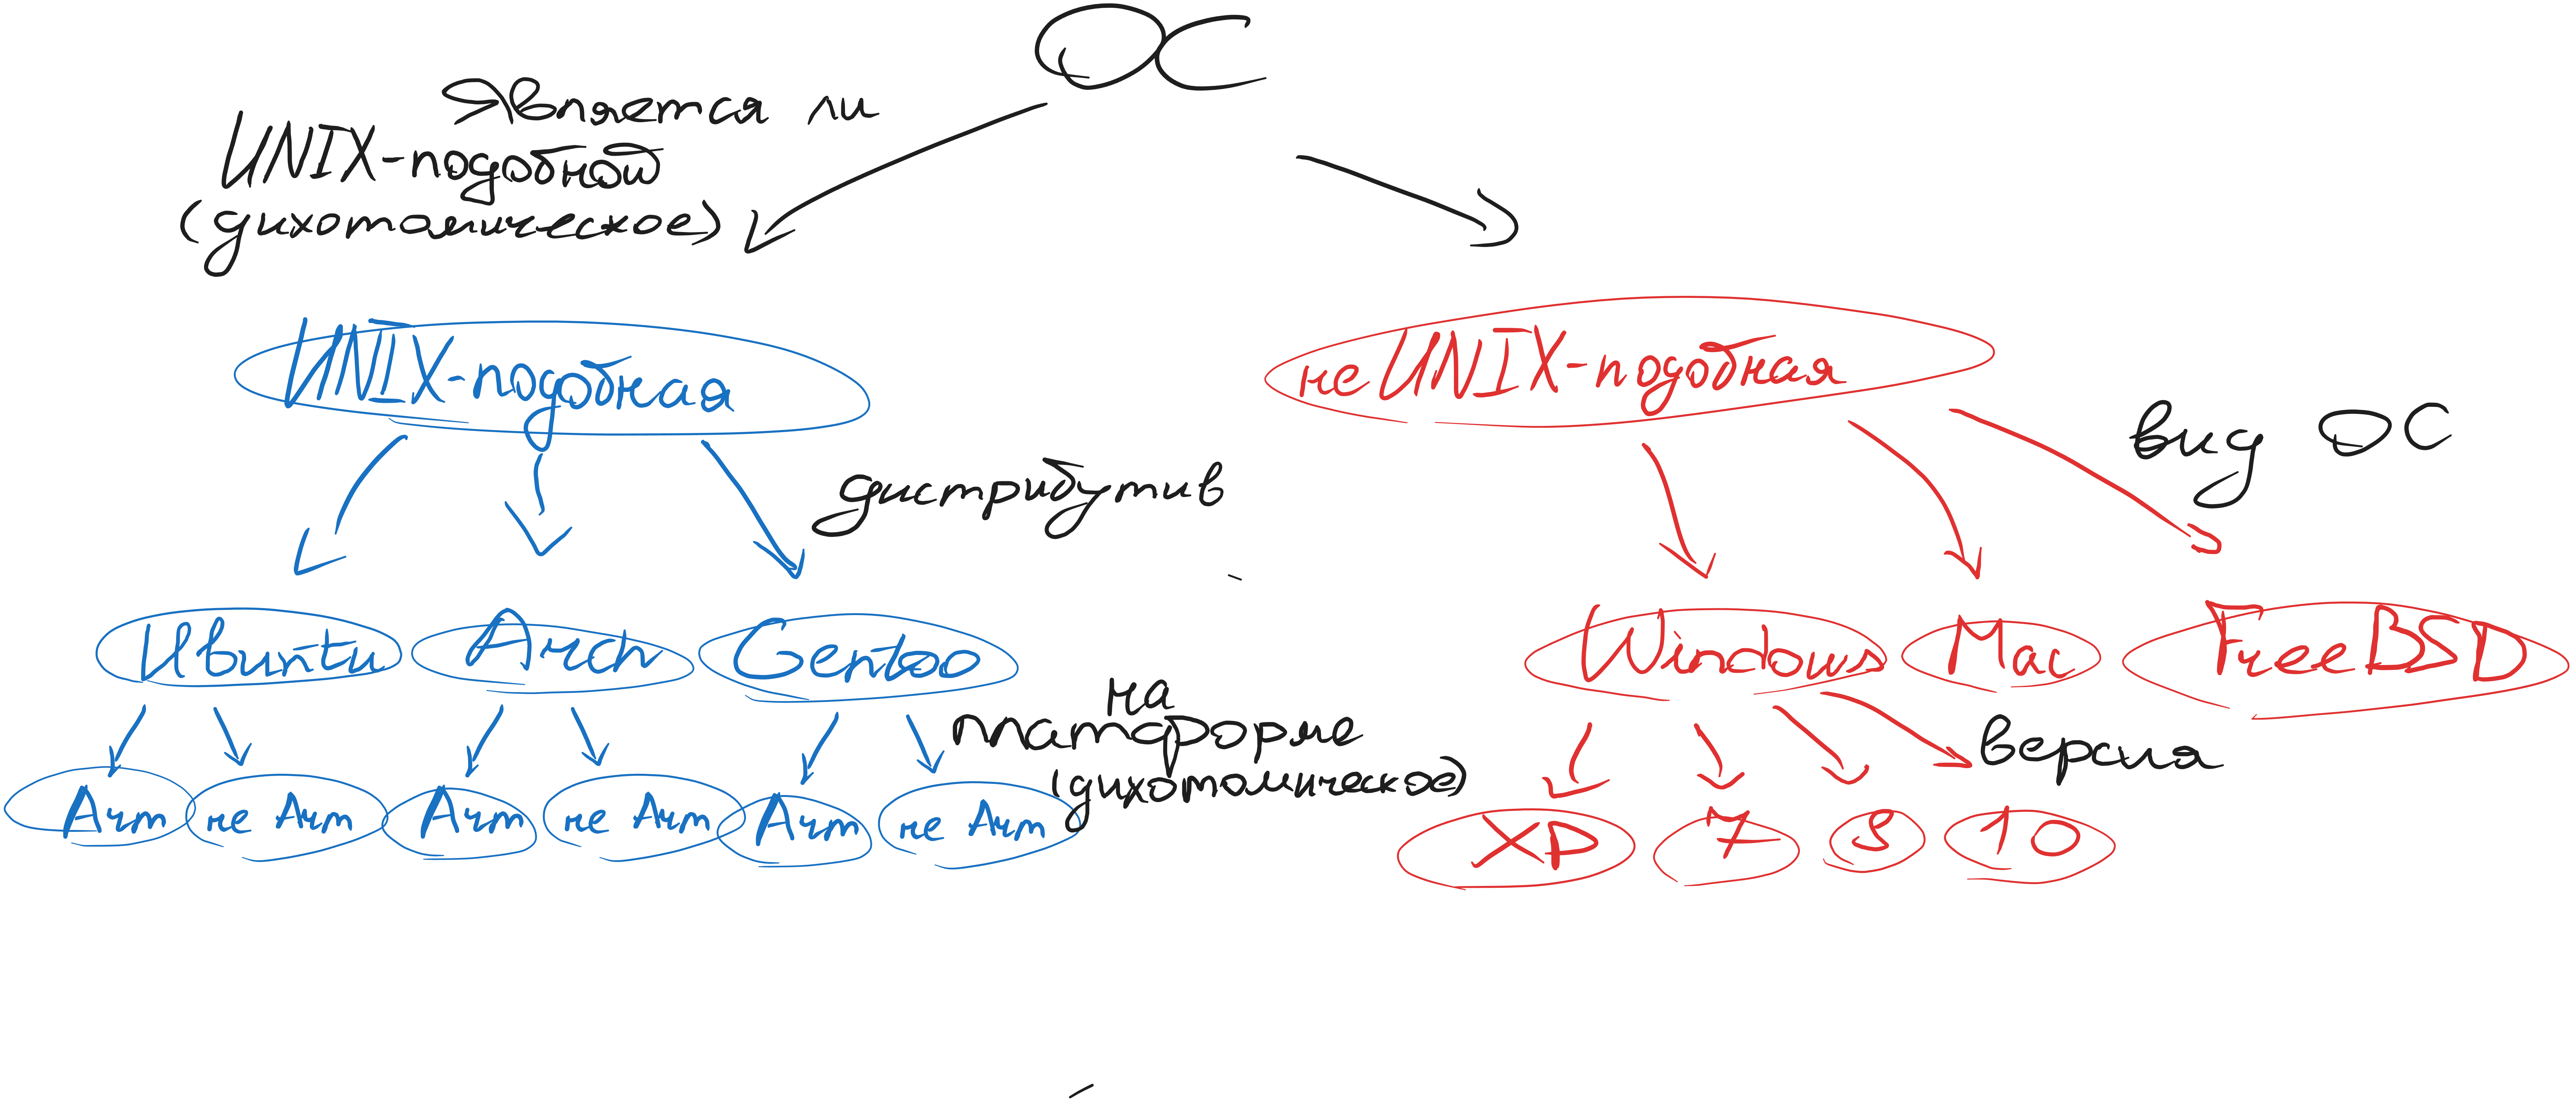 ОС
Является ли
UNIX-подобной
(дихотомическое)
UNIX-подобная
не UNIX-подобная
вид ОС
дистрибутив
Ubuntu Arch Gentoo
Windows Mac FreeBSD
на
платформе
(дихотомическое)
версия
не не не
XP 7 8 10